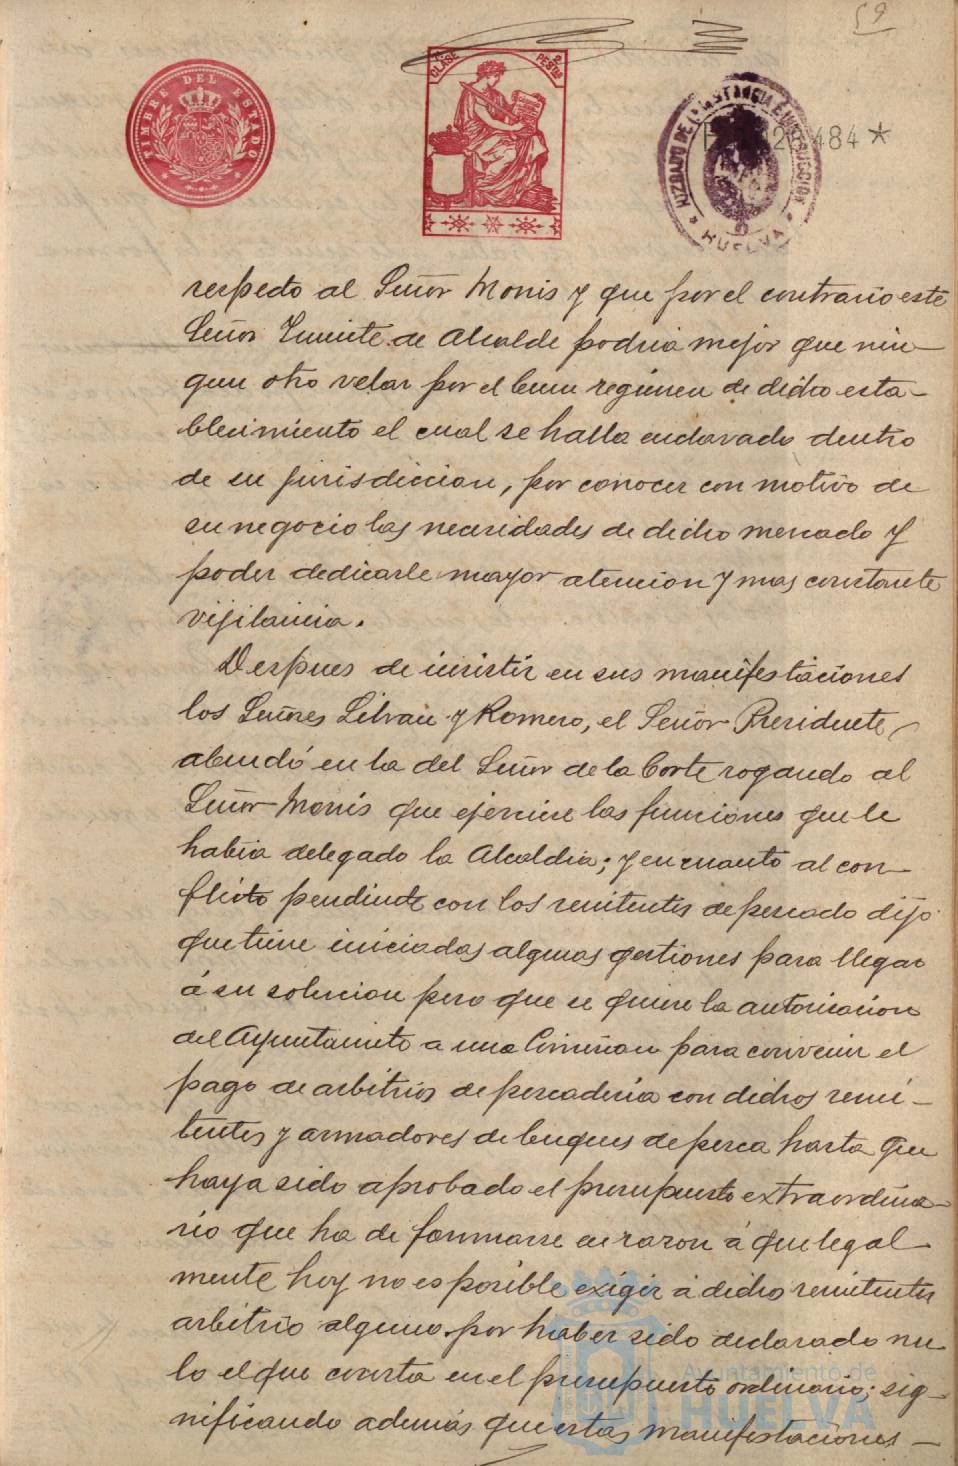 59
TIMBRE DEL ESTADO
CLASE
PESETAS
JUZGADO DE 1ª INSTANCIA É INSTRUCCION
HUELVA
484 *
respecto al Señor Monis y que por el contrario este
Señor Teniente de Alcalde podria mejor que nin-
gun otro velar por el buen regimen de dicho esta-
blecimiento el cual se halla enclavado dentro
de su jurisdiccion, por conocer con motivo de
su negocio las necesidades de dicho mercado y
poder dedicarle mayor atencion y mas constante
vijilancia.
Despues de insistir en sus manifestaciones
los Señores Silvan y Romero, el Señor Presidente,
abundó en la del Señor de la Corte rogando al
Señor Monis que ejerciese las funciones que le
habia delegado la Alcaldia; y en cuanto al con-
flicto pendiente con los remitentes de pescado dijo
que tiene iniciadas algunas gestiones para llegar
á su solucion pero que se quiere la autorizacion
del Ayuntamiento a una Comision para convenir el
pago de arbitrios de pescaderia con dichos remi-
tentes y armadores de buques de pesca hasta que
haya sido aprobado el presupuesto extraordina-
rio que ha de formarse en razon á que legal-
mente hoy no es posible exigir á dichos remitentes
arbitrio alguno por haber sido declarado nu-
lo el que consta en el presupuesto ordinario; sig-
nificando además que estas manifestaciones-
Ayuntamiento de
HUELVA